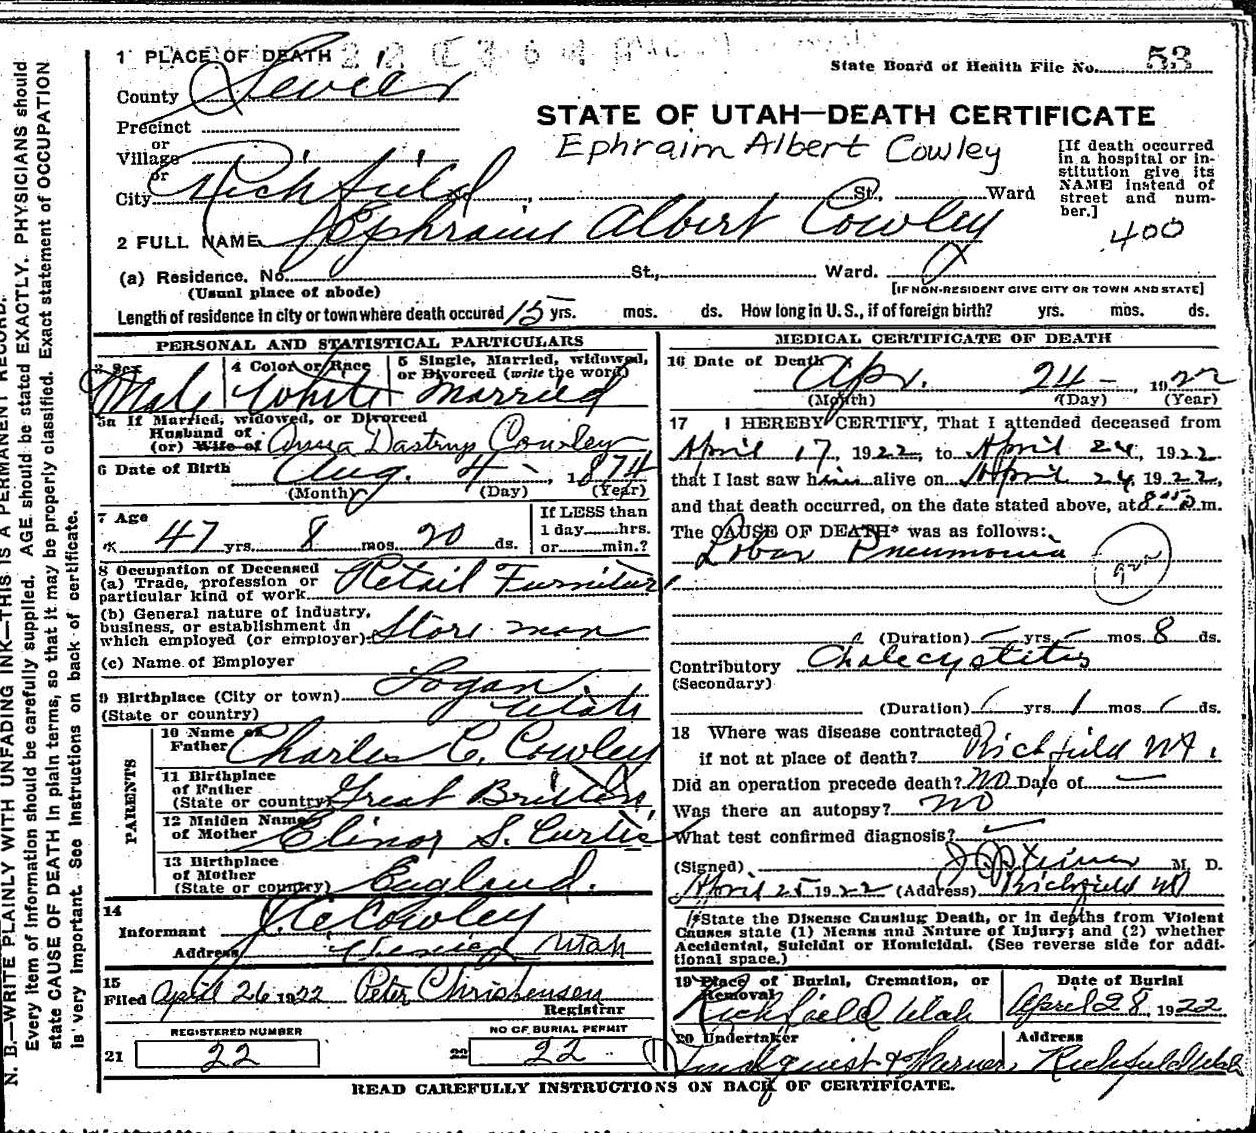 1 PLACE OF DEATH
State Board of Health File No. 53
County Sevier
STATE OF UTAH—DEATH CERTIFICATE
Precinct
or
Village
Ephraim Albert Cowley
[If death occurred in a hospital or institution give its NAME instead of street and number.]
or
City Richfield St., Ward
400
2 FULL NAME Ephraim Albert Cowley
(a) Residence. No. St., Ward.
(Usual place of abode)
[IF NON-RESIDENT GIVE CITY OR TOWN AND STATE]
Length of residence in city or town where death occured 15 yrs. mos. ds. How long in U.S., if of foreign birth? yrs. mos. ds.
PERSONAL AND STATISTICAL PARTICULARS
3 Sex
Male
4 Color or Race
White
5 Single, Married, widowed, or Divorced (write the word)
Married
5a If Married, widowed, or Divorced
Husband of
(or) Wife of Anna Dastrup Cowley
6 Date of Birth Aug. 4 -, 1874
(Month) (Day) (Year)
7 Age
47 yrs. 8 mos. 20 ds.
If LESS than
1 day hrs.
or min.?
8 Occupation of Deceased
(a) Trade, profession or
particular kind of work Retail Furniture
(b) General nature of industry,
business, or establishment in
which employed (or employer) Store man
(c) Name of Employer
9 Birthplace (City or town) Logan
(State or country) Utah
PARENTS
10 Name of
Father Charles C. Cowley
11 Birthplace
of Father
(State or country) Great Britton
12 Maiden Name
of Mother Elinor S. Curtis
13 Birthplace
of Mother
(State or country) England.
14
Informant Cowley
Address Utah
15
Filed April 26 1922 Peter Christensen
Registrar
REGISTERED NUMBER
21 22
NO OF BURIAL PERMIT
22 22
MEDICAL CERTIFICATE OF DEATH
16 Date of Death Apr. 24 -, 1922
(Month) (Day) (Year)
17 I HEREBY CERTIFY, That I attended deceased from
April 17, 1922, to April 24, 1922
that I last saw him alive on April 24, 1922,
and that death occurred, on the date stated above, at m.
The CAUSE OF DEATH* was as follows:
Lobar Pneumonia
(Duration) yrs. mos. 8 ds.
Contributory Cholecystitis
(Secondary)
(Duration) yrs. 1 mos. ds.
18 Where was disease contracted
if not at place of death? Richfield Ut.
Did an operation precede death? no Date of
Was there an autopsy? no
What test confirmed diagnosis?
(Signed) M. D.
April 25 1922 (Address) Richfield Ut
(*State the Disease Causing Death, or in deaths from Violent Causes state (1) Means and Nature of Injury; and (2) whether Accidental, Suicidal or Homicidal. (See reverse side for additional space.)
19 Place of Burial, Cremation, or
Removal
Richfield Utah
Date of Burial
April 28, 1922
20 Undertaker
Address
Richfield Utah
READ CAREFULLY INSTRUCTIONS ON BACK OF CERTIFICATE.
N. B.—WRITE PLAINLY WITH UNFADING INK—THIS IS A PERMANENT RECORD.
Every item of information should be carefully supplied. AGE should be stated EXACTLY. PHYSICIANS should
state CAUSE OF DEATH in plain terms, so that it may be properly classified. Exact statement of OCCUPATION
is very important. See instructions on back of certificate.